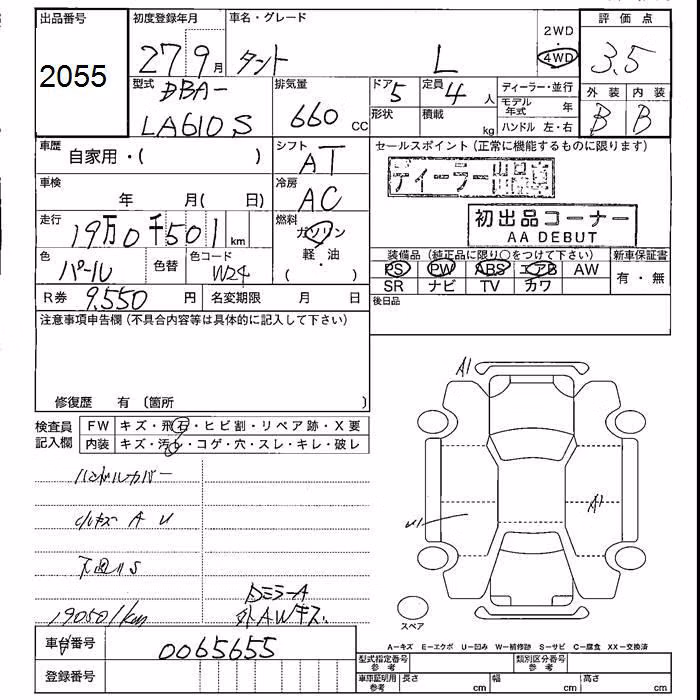 出品番号
2055
初度登録年月
27 9月
車名・グレード
タント L
2WD
4WD
評価点
3.5
外装 内装
B B
型式
DBA-
LA610S
排気量
660 CC
ドア 5
形状
定員 4人
積載 kg
ディーラー・並行
モデル年式 年
ハンドル 左・右
車歴
自家用・( )
シフト
AT
セールスポイント(正常に機能するものに限ります)
ディーラー出品車
車検
年 月( 日)
冷房
AC
初出品コーナー
AA DEBUT
走行
19万0千501km
燃料
ガソリン
軽・油
( )
色
パール
色替
色コード
W24
装備品(純正品に限り○をつけて下さい)
新車保証書
PS PW ABS エアB AW
SR ナビ TV カワ
有・無
R券 9.550円
名変期限 月 日
後日品
注意事項申告欄(不具合内容等は具体的に記入して下さい)
修復歴 有〔箇所 〕
検査員記入欄
FW キズ・飛石・ヒビ割・リペア跡・X要
内装 キズ・汚レ・コゲ・穴・スレ・キレ・破レ
ハンドルカバー
小キズ A U
下回りS
190501km
ドミラーA
外AWキズ
A1
A1
U1
スペア
A-キズ E-エクボ U-凹み W-補修跡 S-サビ C-腐食 XX-交換済
車台番号
0065655
登録番号
型式指定番号 参考
類別区分番号 参考
車庫証明用 参考
長さ cm
幅 cm
高さ cm